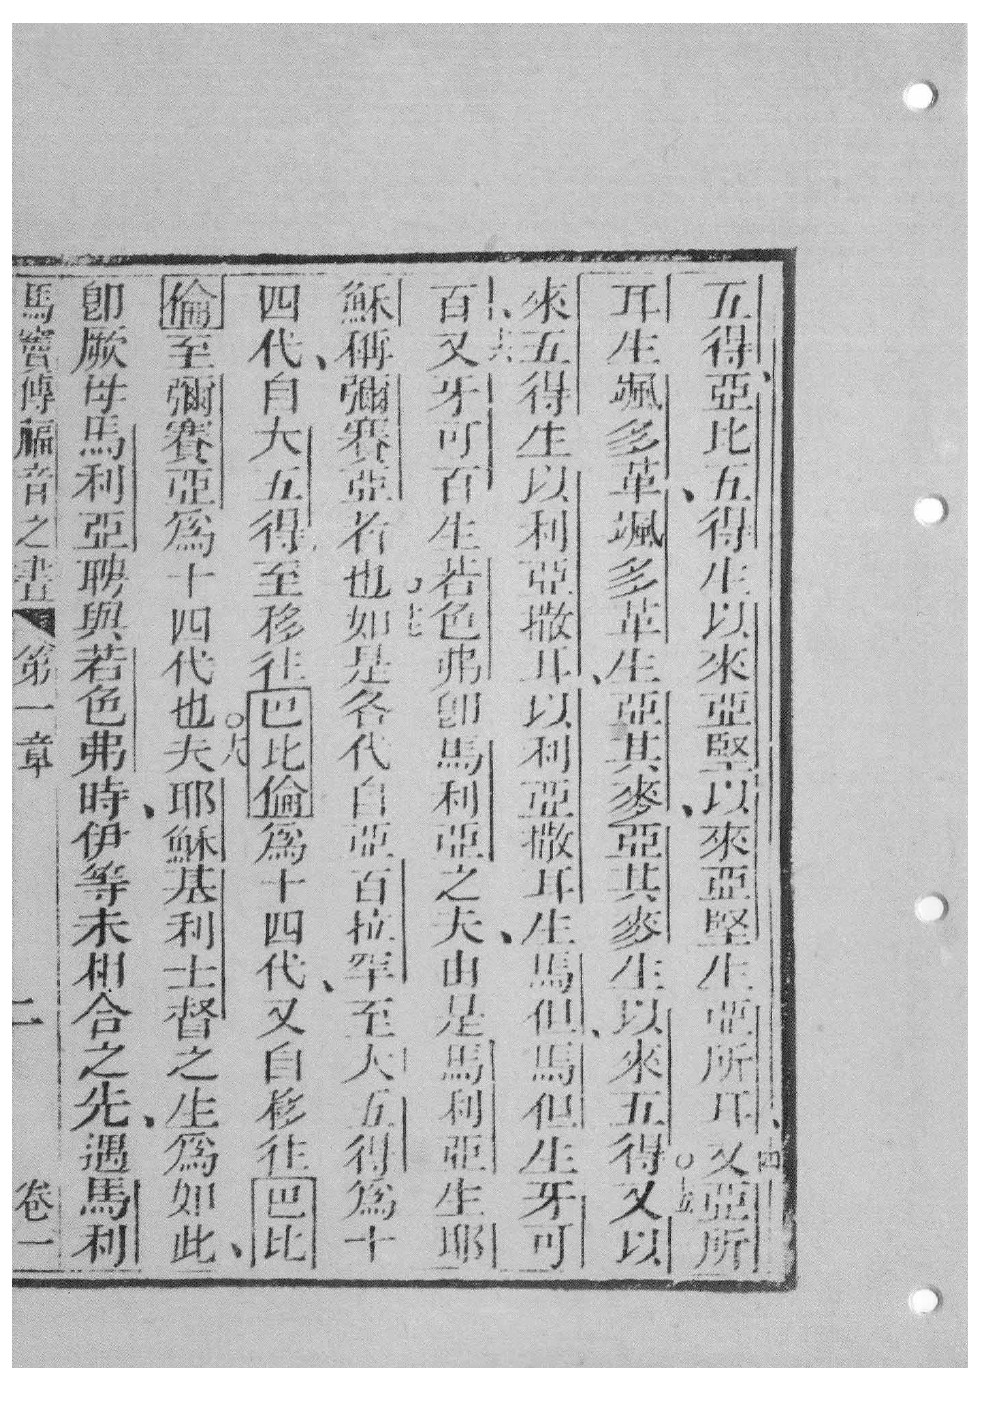 五得亞比五得生以來亞堅以來亞堅生亞所耳又亞所
十四
耳生颯多革颯多革生亞其麥亞其麥生以來五得又以
十五
來五得生以利亞撒耳以利亞撒耳生馬但馬但生牙可
十六
百又牙可百生若色弗卽馬利亞之夫由是馬利亞生耶
十七
穌稱彌賽亞者也如是各代自亞百拉罕至大五得為十
四代自大五得至移徃巴比倫為十四代又自移徃巴比
十八
倫至彌賽亞為十四代也夫耶穌基利士督之生為如此
卽厥母馬利亞聘與若色弗時伊等未相合之先遇馬利
馬竇傳福音之書 第一章 二 卷一